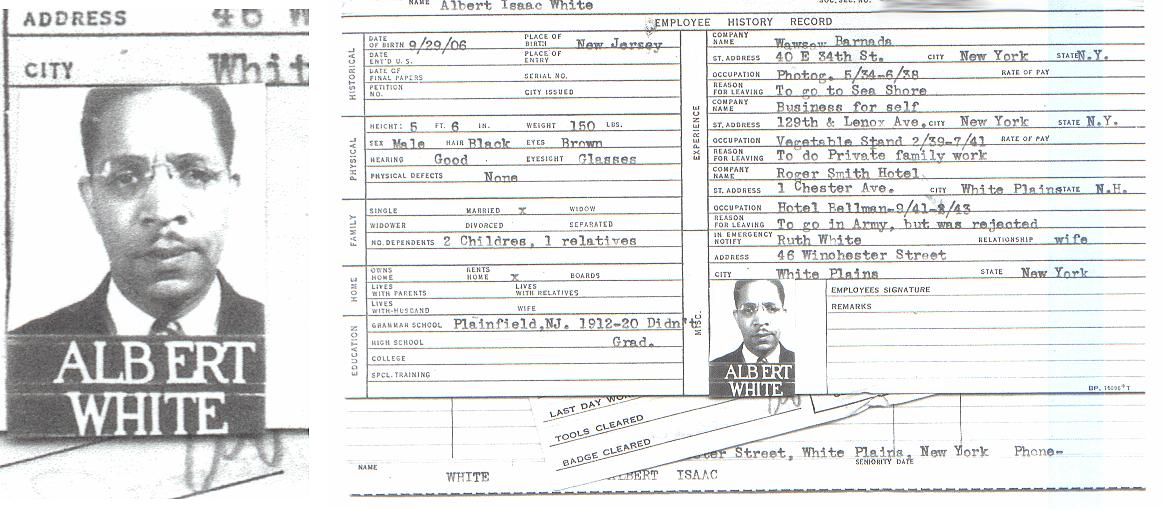 ADDRESS 46 W
CITY Whit
ALBERT
WHITE
NAME Albert Isaac White
EMPLOYEE HISTORY RECORD
HISTORICAL
DATE OF BIRTH 9/29/06 PLACE OF BIRTH New Jersey
DATE ENT'D U.S. PLACE OF ENTRY
DATE OF FINAL PAPERS SERIAL NO.
PETITION NO. CITY ISSUED
PHYSICAL
HEIGHT: 5 FT. 6 IN. WEIGHT 150 LBS.
SEX Male HAIR Black EYES Brown
HEARING Good EYESIGHT Glasses
PHYSICAL DEFECTS None
FAMILY
SINGLE MARRIED X WIDOW
WIDOWER DIVORCED SEPARATED
NO. DEPENDENTS 2 Childres, 1 relatives
HOME
OWNS HOME RENTS HOME X BOARDS
LIVES WITH PARENTS LIVES WITH RELATIVES
LIVES WITH-HUSBAND WIFE
EDUCATION
GRAMMAR SCHOOL Plainfield,NJ. 1912-20 Didn't
HIGH SCHOOL Grad.
COLLEGE
SPCL. TRAINING
EXPERIENCE
COMPANY NAME Barnada
ST. ADDRESS 40 E 34th St. CITY New York STATE N.Y.
OCCUPATION Photog. 5/34-6/38 RATE OF PAY
REASON FOR LEAVING To go to Sea Shore
COMPANY NAME Business for self
ST. ADDRESS 129th & Lenox Ave. CITY New York STATE N.Y.
OCCUPATION Vegetable Stand 2/39-7/41 RATE OF PAY
REASON FOR LEAVING To do Private family work
COMPANY NAME Roger Smith Hotel
ST. ADDRESS 1 Chester Ave. CITY White Plains STATE N.H.
OCCUPATION Hotel Bellman-9/41-8/43
REASON FOR LEAVING To go in Army, but was rejected
IN EMERGENCY NOTIFY Ruth White RELATIONSHIP wife
ADDRESS 46 Winchester Street
CITY White Plains STATE New York
MISC.
ALBERT
WHITE
EMPLOYEES SIGNATURE
REMARKS
LAST DAY WO
TOOLS CLEARED
BADGE CLEARED
ter Street, White Plains, New York Phone-
SENIORITY DATE
NAME WHITE ALBERT ISAAC